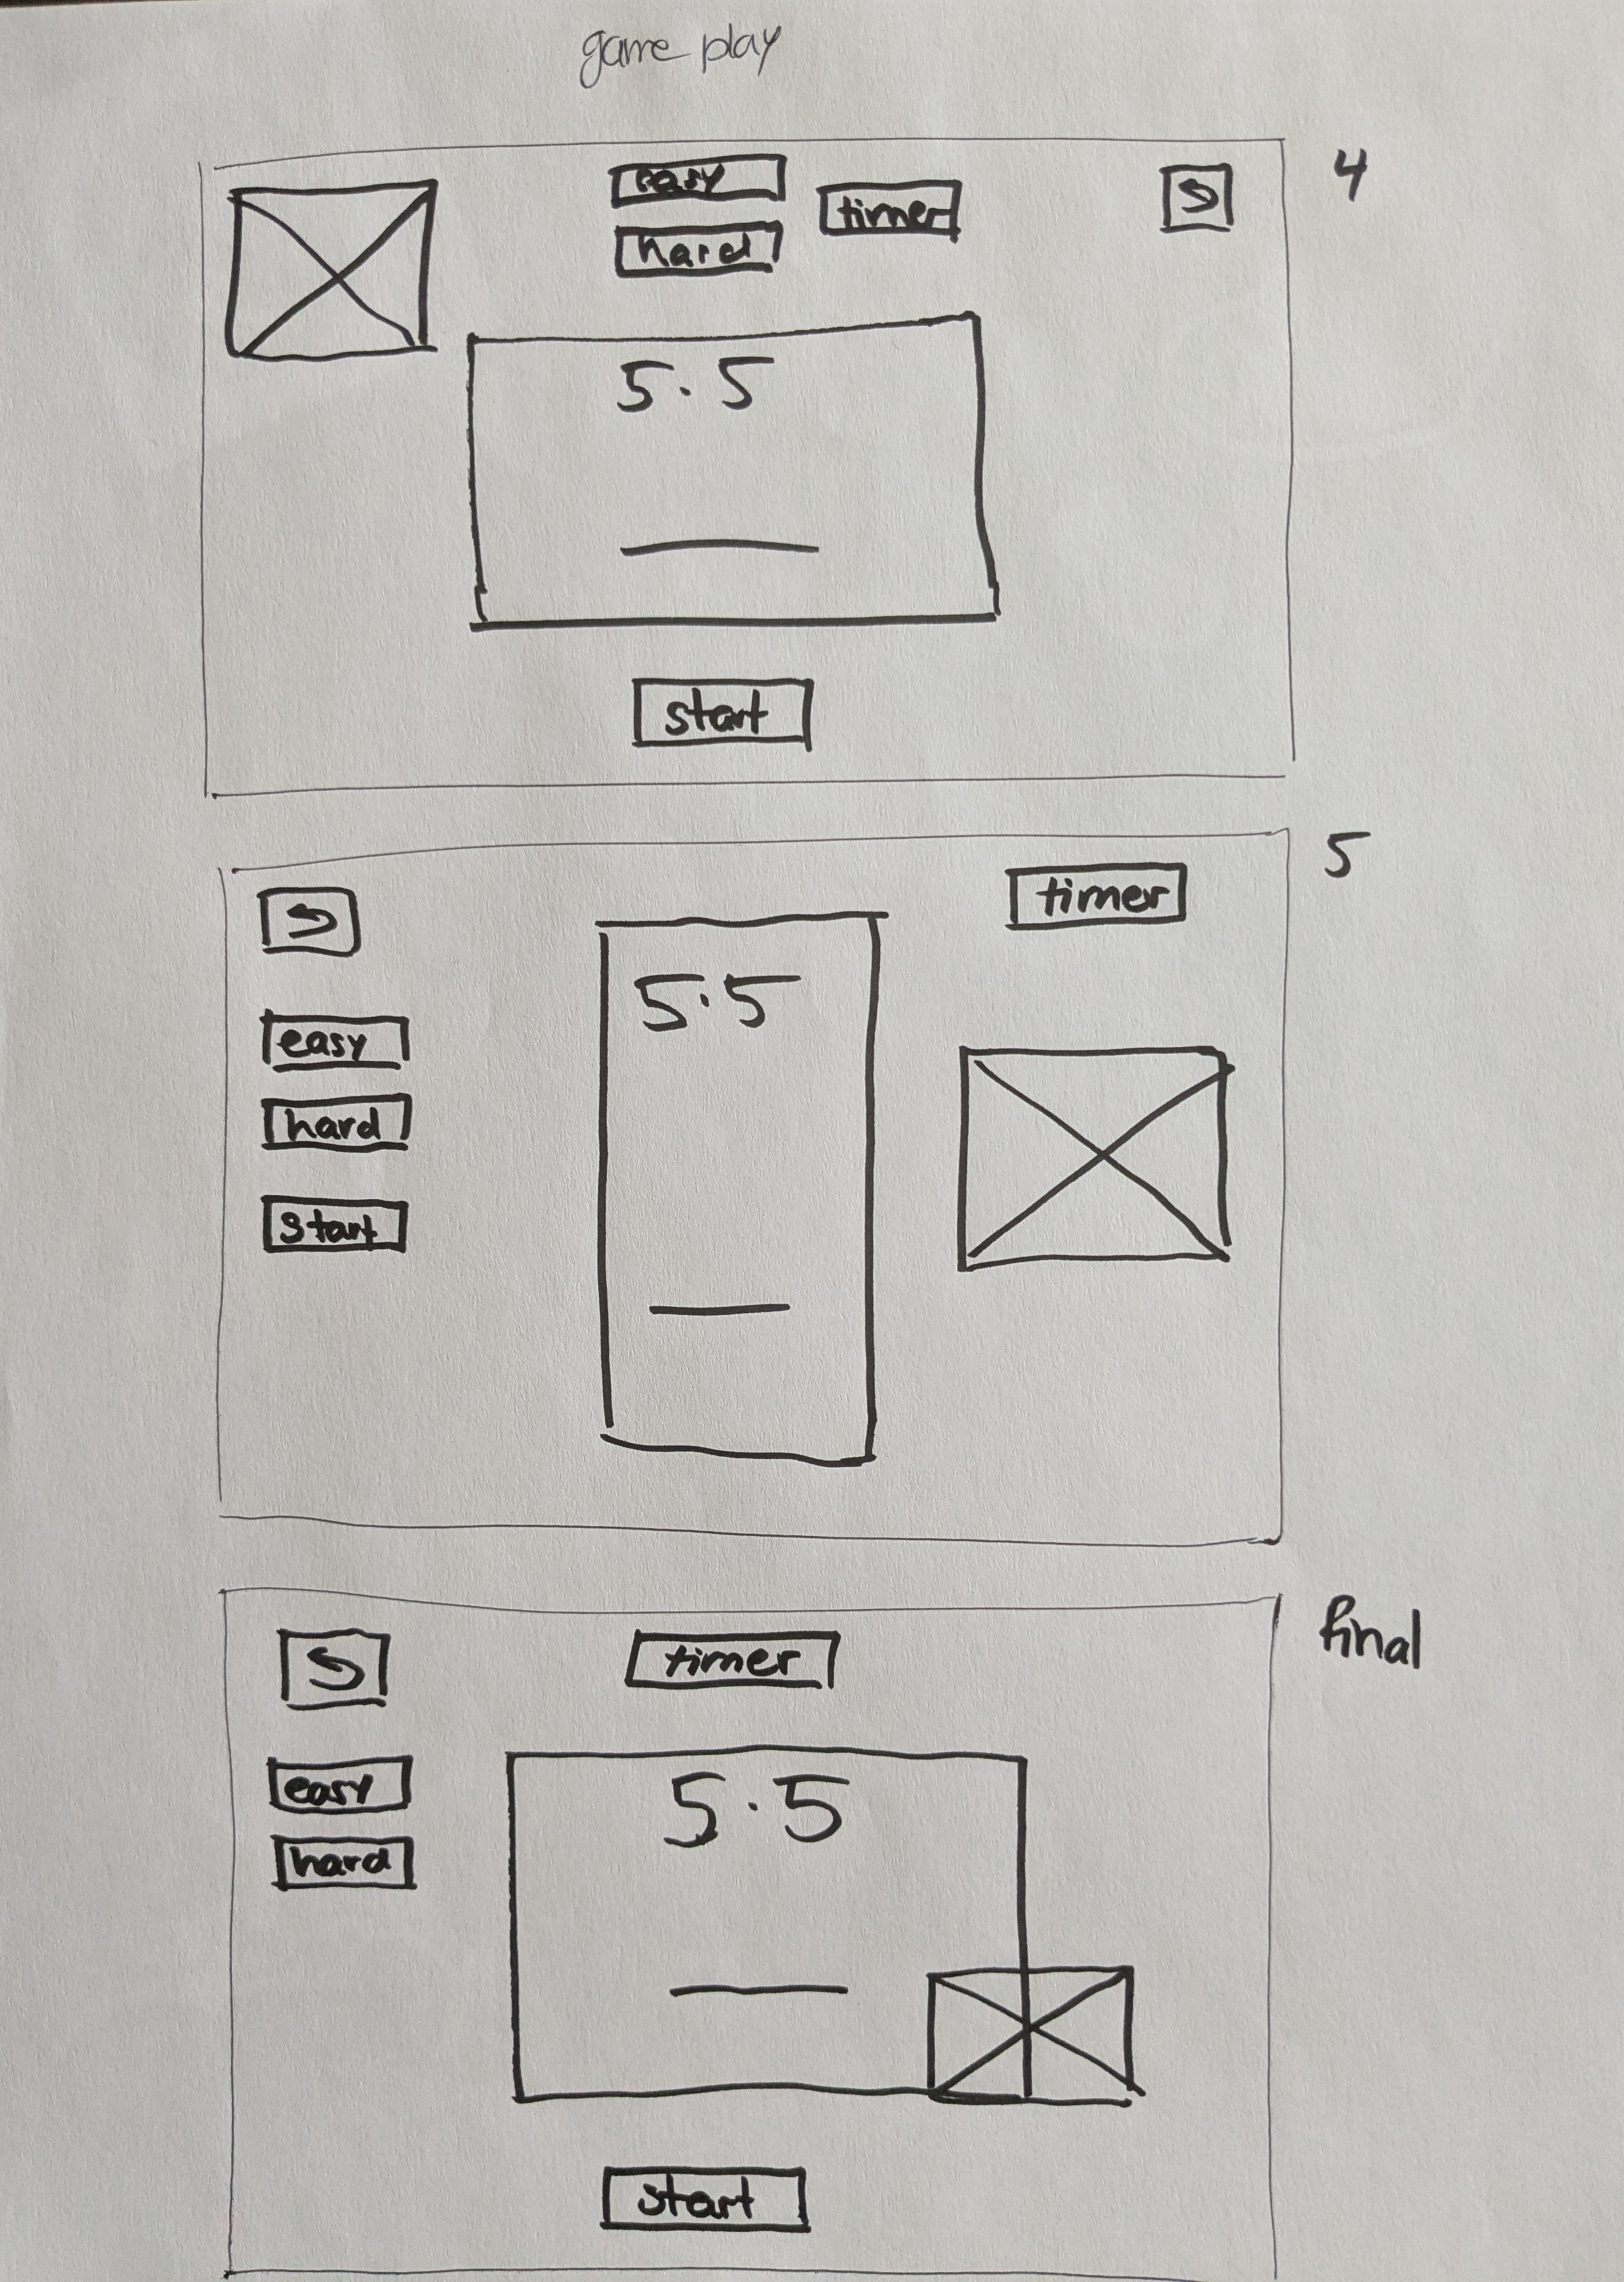 game play
4
easy
timer
hard
5.5
start
5
timer
easy
hard
start
5.5
final
timer
easy
hard
5.5
start